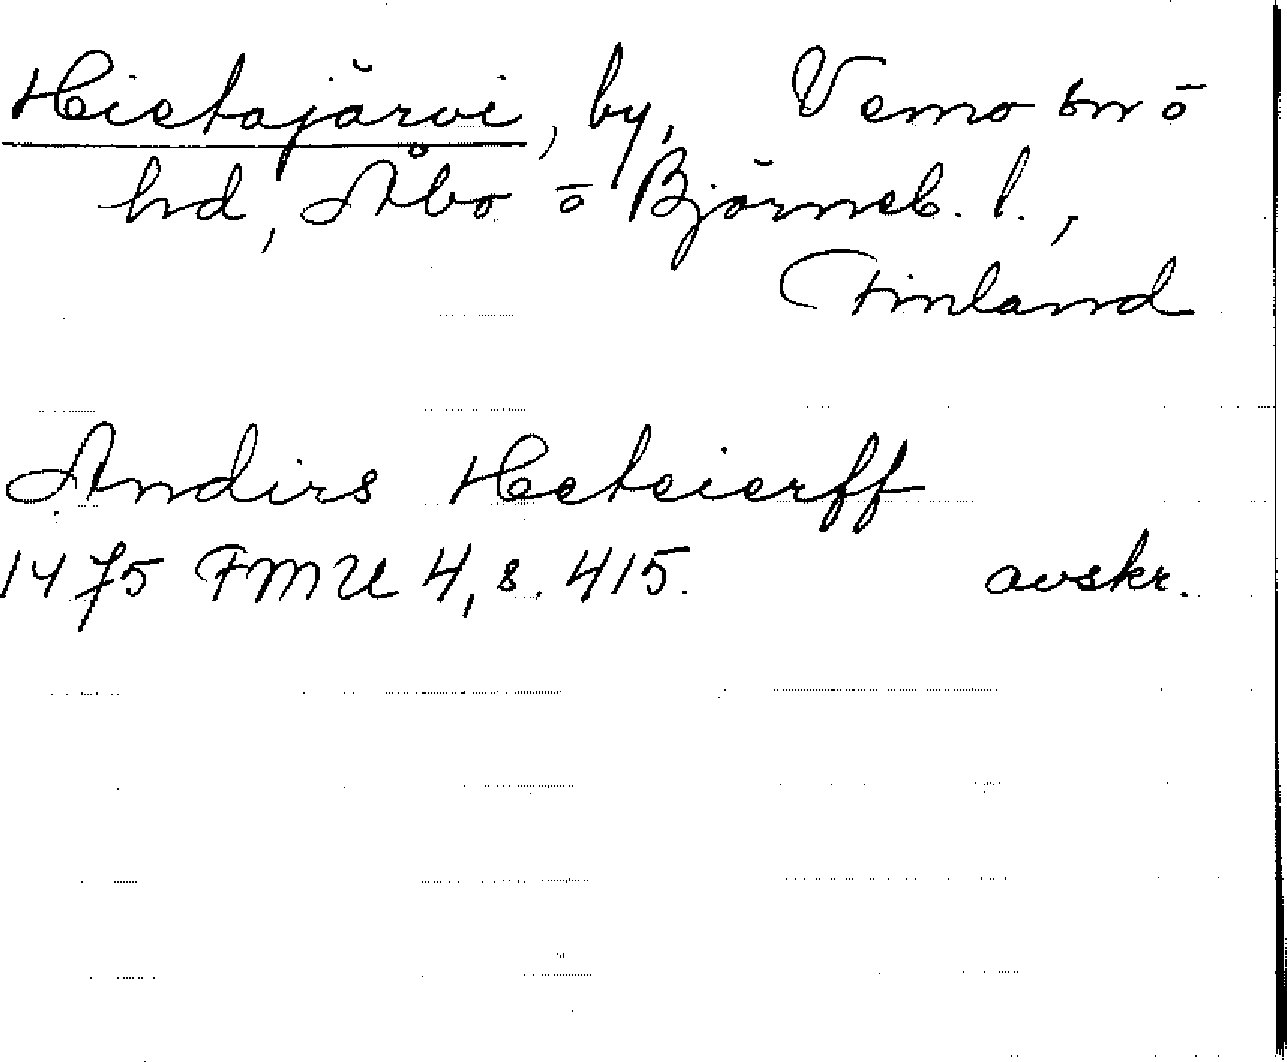 Hietajärvi, by, Vemo sn o
hd, Åbo o Björneb. l.,
Finland
Andirs Heteierff
1475 FMU 4, s. 415. avskr.